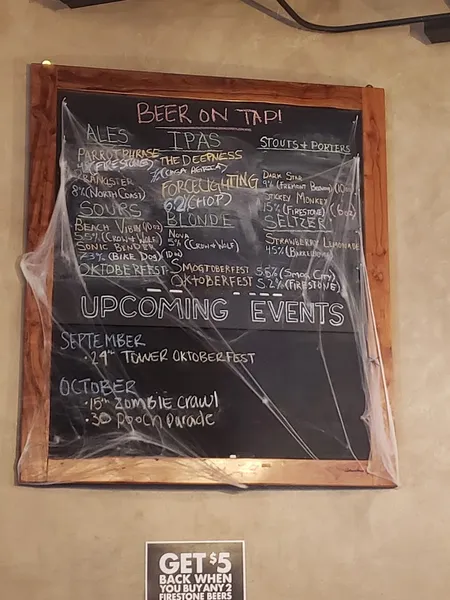 BEER ON TAP!
ALES
PARROTPHRASE
(FIRESTONE)
PRANGSTER
8% (NORTH COAST)
SOURS
BEACH VIBIN (10oz)
5.5% (CROW & WOLF)
SONIC BENDER
(BIKE DOG)
OKTOBERFEST
IPAS
THE DEEPNESS
(CASA AGRIA)
FORCELIGHTING
6.2% (CHOP)
BLONDE
NOVA
5% (CROW & WOLF)
STOUTS & PORTERS
DARK STAR
9% (FREMONT BREWING)
STICKEY MONKEY
15% (FIRESTONE) (6oz)
SELTZER
STRAWBERRY LEMONADE
SMOGTOBERFEST 5.6% (SMOG CITY)
OKTOBERFEST 5.2% (FIRESTONE)
UPCOMING EVENTS
SEPTEMBER
• 24th TOWER OKTOBERFEST
OCTOBER
• 15th ZOMBIE CRAWL
• 30 POOCH PARADE
GET $5
BACK WHEN
YOU BUY ANY 2
FIRESTONE BEERS